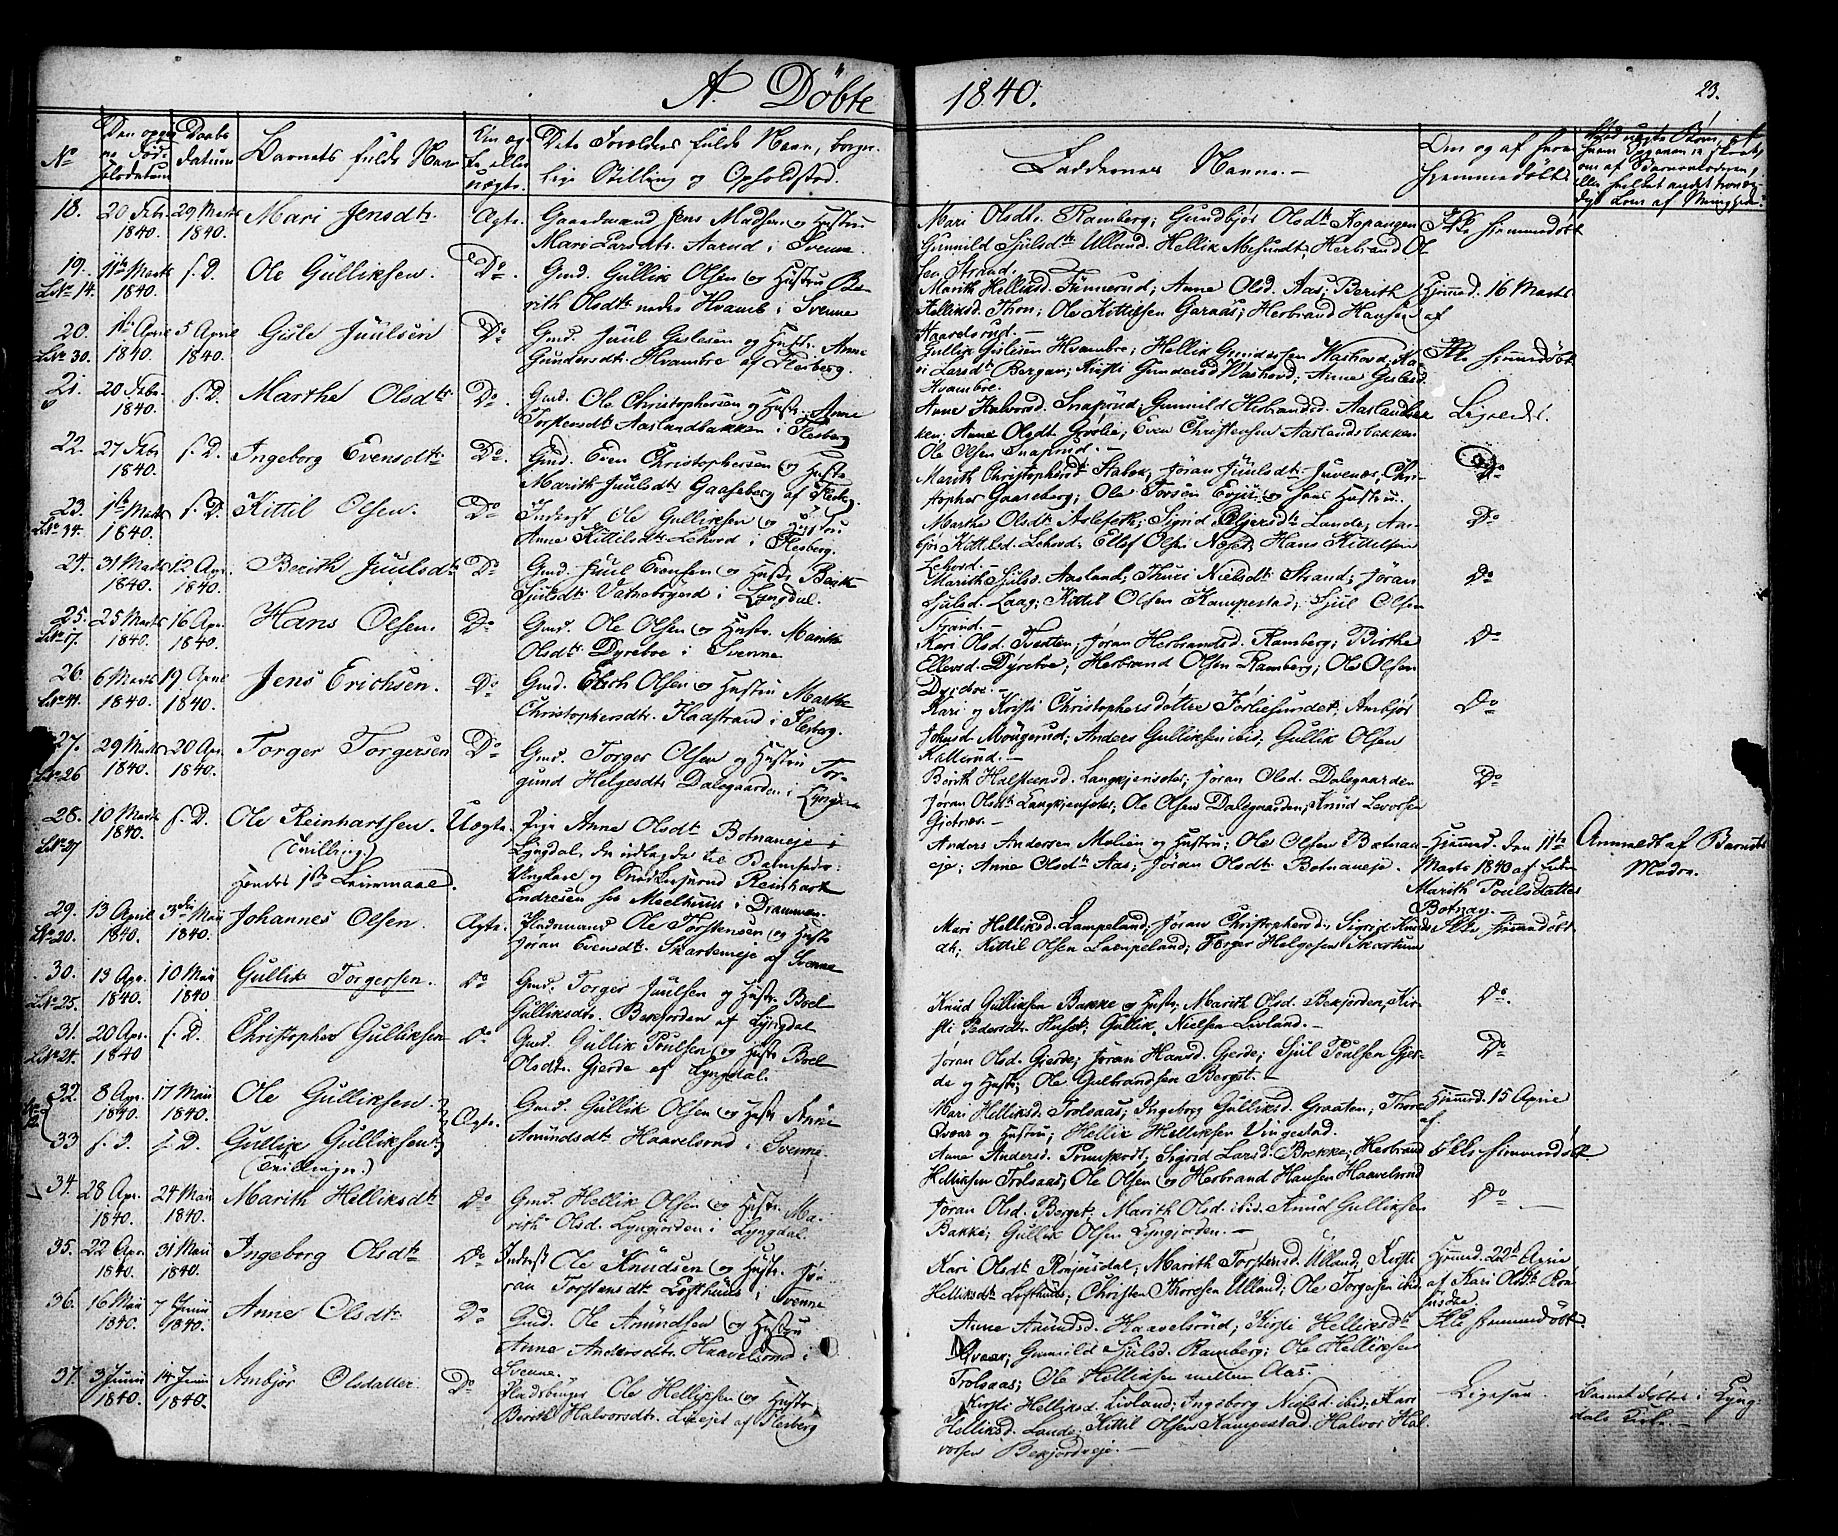 A. Döbte 1840.
23.
No
Barnets fulde Navn
Faddernes Navne.
18. 20 Febr. 1840. 29 Marts 1840. Mari Jensdtr. Ægte. Gaardmand Jens Madsen og Hustru
Mari Larsdtr. Aarud i Svenne
Mari Olsdtr. Ramberg; Gundbjør Olsdtr.
Gunnild Sjulsdtr. Ulland; Hellik
sen Strand.
Ikke hjemmedöbt
19. 11te Marts 1840. s. D. Ole Gulliksen. Do. Gmd. Gullik Olsen og Hustru Be-
Lit. 14.
rith Olsdtr. nedre Hvamb i Svenne
Marith Helliksd. Tinnerud; Anne Olsd. Aas; Berith
Helliksd. Thon; Ole Kittilsen Garaas; Herbrand Hansen
Haavelsrud.
Hjemmed. 16 Marts
af
20. 1ste April 1840. 5 April 1840. Gisle Juulsen Do Gmd. Juul Gislesen og Hustr. Anne
Lit. 30.
Gundersdtr. Hvambre af Flesberg.
Gullik Gislesen Hvambre; Hellik Gundersen
Larsdtr. Bergan; Kirsti Gundersd. Anne Gislesd.
Hvambre.
Ikke hjemmedöbt
21. 20 Febr. 1840. s. D. Marthe Olsdtr. Do. Gmd. Ole Christophersen og Hustr. Anne
Aaslandbakken i Flesberg
Anne Halvorsd. Snaprud; Gunnild Herbrandsd. Aaslandbak-
ken; Anne Olsdtr. Even Christensen Aaslandsbakken
Ole Olsen Snaprud.
Ligeledes.
22. 27 Febr. 1840. s. D. Ingeborg Evensdtr. Do. Gmd. Even Christophersen og Hustr.
Marith Juulsdtr. Gaaseberg af Flesberg.
Marith Christophersdtr. Stabek; Jøran Juulsdtr. Juvenæs; Chri-
stopher Gaaseberg; Ole Torsen og hans Hustru.
Do
23. 1ste Marts 1840. s. D. Kittil Olsen. Do Inderst Ole Gulliksen og Hustru
Lit. 34.
Anne Kittilsdtr. Lehovd i Flesberg.
Marthe Olsdtr. Aslefeth; Sigrid Lande; An-
björ Kittilsd. Lehovd; Ellef Olsen Hans Kittilsen
Lehovd.
Do
24. 31 Marts 1840. 12 Apr. 1840. Berith Juulsdtr. Do Gmd. Juul Evensen og Hustr.
Sjulsdtr. i Lyngdal.
Marith Sjulsd. Aasland; Thuri Nielsdtr. Strand; Jøran
Sjulsd. Laag; Kittil Olsen Kampestad; Sjul Olsen
Strand.
Do
25. 25 Marts 1840. 16 Apr. 1840. Hans Olsen. Do Gmd. Ole Olsen og Hustr. Marith
Lit. 17.
Olsdtr. Dyreboe i Svenne
Kari Olsd. Tvedten; Jøran Herbrandsd. Ramberg; Birthe
Ellevsd. Dyreboe; Herbrand Olsen Ramberg; Ole Olsen
Do
26. 6 Marts 1840. 19 April 1840. Jens Erichsen. Do Gmd. Erich Olsen og Hustru Marthe
Christophersdtr. Haadstrand i Flesberg.
Kari og Kirsti Christophersdöttre Anbjör
Anders Gulliksen ibid; Gullik Olsen
Do
27. 29 Marts 1840. 20 Apr. 1840. Torger Torgersen Do. Gmd. Torger Olsen og Hustru Tor-
Lit. 26
gund Helgesdtr. Dalegaarden i Lyngdal
Berith Halstensd. Langkjenseter; Jøran Olsd. Dalegaarden
Jøran Olsdtr. Langkjenseter; Ole Olsen Dalegaarden; Knud Levorsen
Do
28. 10 Marts 1840. s. D. Ole Reinhartsen. Uægte. Pige Anne Olsdtr. Botnaneje i
Lit. 27
(Tvilling)
Lyngdal, der udlagde til Barnefader
Hendes 1ste Leiermaal.
Ungkarl og Snedkersvend Reinhart
Endresen hos i Drammen
Anders Andersen Molien og Hustru; Ole Olsen Botnan-
eje; Anne Olsdtr. Aas; Jøran Olsdtr. Botnaneje.
Hjemmed. den 11te
Marts 1840 af
Marith Povelsdatter
Botnan.
Anmeldt af Barnets
Moder.
29. 13 April 1840. 3die Mai 1840. Johannes Olsen. Ægte. Pladsmand Ole Torstensen og Hustr.
Lit. 20.
Jøran Evensdtr. af Svenne
Mari Helliksd. Lampeland; Jøran Christophersd. Sigrid Knuds-
dtr; Kittil Olsen Lampeland; Torger Helgesen
Ikke hjemmedöbt.
30. 13 Apr. 1840. 10 Mai 1840 Gullik Torgersen. Do Gmd. Torger Juulsen og Hustr. Boel
Lit. 25.
Gulliksdtr. Bekjorden af Lyngdal
Knud Gulliksen Bakke og Hustr; Marith Olsd. Bekjorden; Kir-
sti Pedersdtr. Gullik Nielsen Livland.
Do.
31. 20 Apr. 1840 s. D. Christopher Gulliksen Do. Gmd. Gullik Poulsen og Hustr. Boel
Lit. 21.
Olsdtr. Gjerde af Lyngdal.
Jøran Olsd. Gjerde; Jøran Hansd. Gjerde; Sjul Poulsen Gjer-
de og Hustr; Ole Gulbrandsen Bergst.
Do
32. 8 Apr. 1840. 17 Mai 1840. Ole Gulliksen. Ægte. Gmd. Gullik Olsen og Hustr. Anne
Amundsdtr. Haavelsrud i Svenne.
Mari Helliksd. Trolsaas; Ingeborg Gulliksd. Graaten; Thore
Qvær og Hustru; Hellik Helliksen Vingestad.
Hjemmed. 15 April
af
33. s. D. s. D. Gullik Gulliksen
(Tvillinger.)
Anne Andersd. Sigrid Larsd. Brekke; Herbrand
Helliksen Trolsaas; Ole Olsen og Herbrand Hansen Haavelsrud
Ikke hjemmedöbt.
34. 28 Apr. 1840. 24 Mai 1840. Marith Helliksdtr. Do Gmd. Hellik Olsen og Hustr. Ma-
rith Olsd. Lyngjorden i Lyngdal.
Jøran Olsd. Berget. Marith Olsd. ibid. Knud Gulliksen
Bakke; Gullik Olsen Lyngjorden.
Do
35. 22 Apr. 1840. 31 Mai 1840. Ingeborg Olsdtr. Do. Inderst Ole Knudsen og Hustr. Jö-
ran Torstensdtr. Lofthuus i Svenne
Kari Olsdtr. Marith Torstensd. Ulland; Kirsti
Helliksdtr. Lofthuus; Christen Thoresen Ulland; Ole Torgersen ibid.
Hjemmed. 22d April
af Kari Olsdtr.
36. 16 Mai 1840. 7 Junii 1840. Anne Olsdtr. Do Gmd. Ole Amundsen og Hustru
Anne Andersdtr. Haavelsrud i
Svenne.
Anne Amundsd. Haavelsrud; Kirsti Helliksdtr.
Qvær; Gunnild Sjulsd. Ramberg; Ole Helliksen
Trolsaas; Ole Helliksen mellem Aas.
Ikke hjemmedöbt.
37. 3 Junii 1840. 14 Junii 1840. Anbjör Olsdatter. Do Pladsbruger Ole Helliksen og Hustr.
Berith Halvorsdtr. af Flesberg
Kirsti Helliksd. Livland; Ingeborg Nielsd. ibid; Kari
Helliksd. Lande; Kittil Olsen Kampestad. Halvor Hal-
vorsen Bekjordseje.
Ligesaa.
Barnet döbt i Lyng-
dals Kirke.